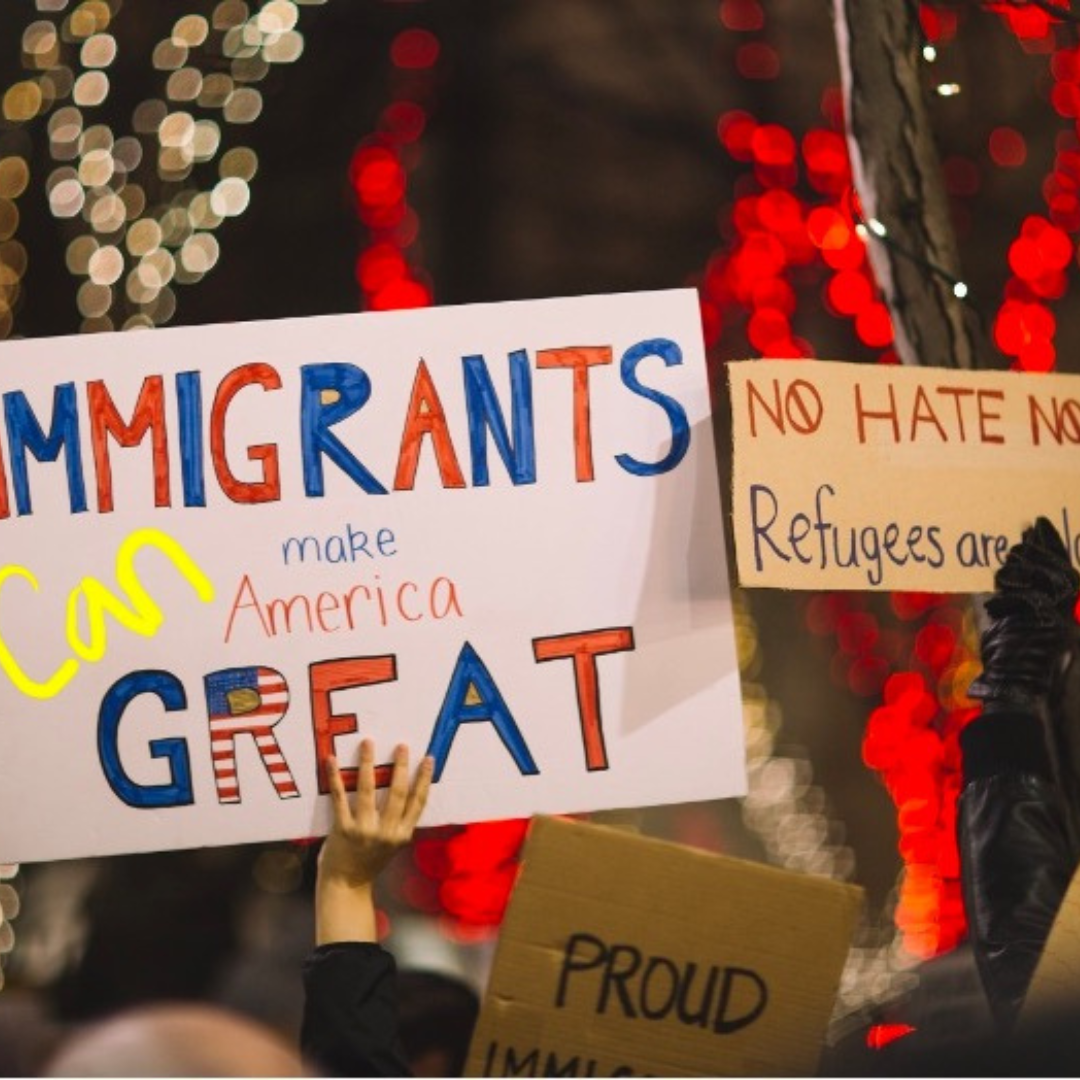 IMMIGRANTS
Can make
America
GREAT
NO HATE NO
Refugees are
PROUD